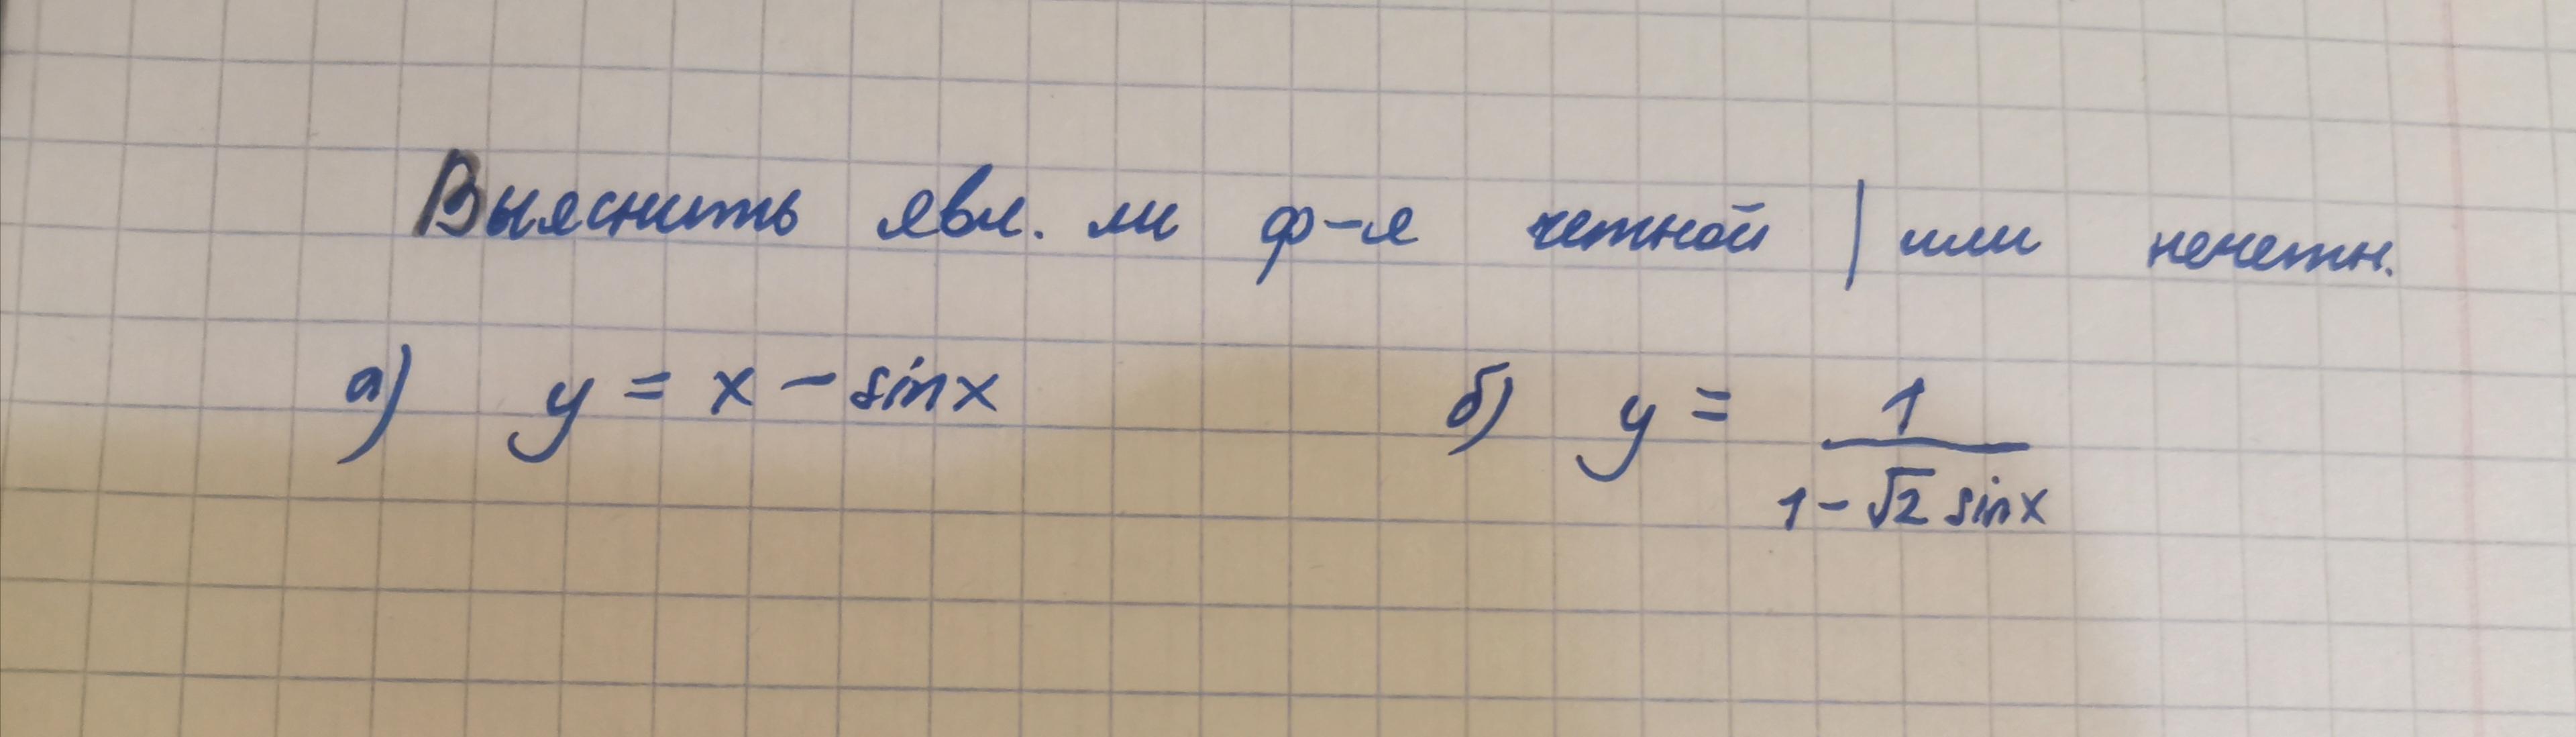 Выяснить явл. ли ф-я четной | или нечетн.
а) y = x - sinx б) y = 1 / (1 - √2 sinx)